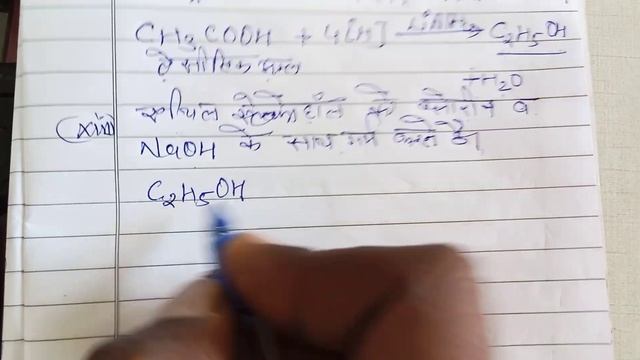 CH3COOH + 4[H] LiAlH4 → C2H5OH
ऐसीटिक अम्ल + H2O
(xiii) एथिल ऐल्कोहॉल को क्लोरीन व
NaOH के साथ गर्म करते है।
C2H5OH